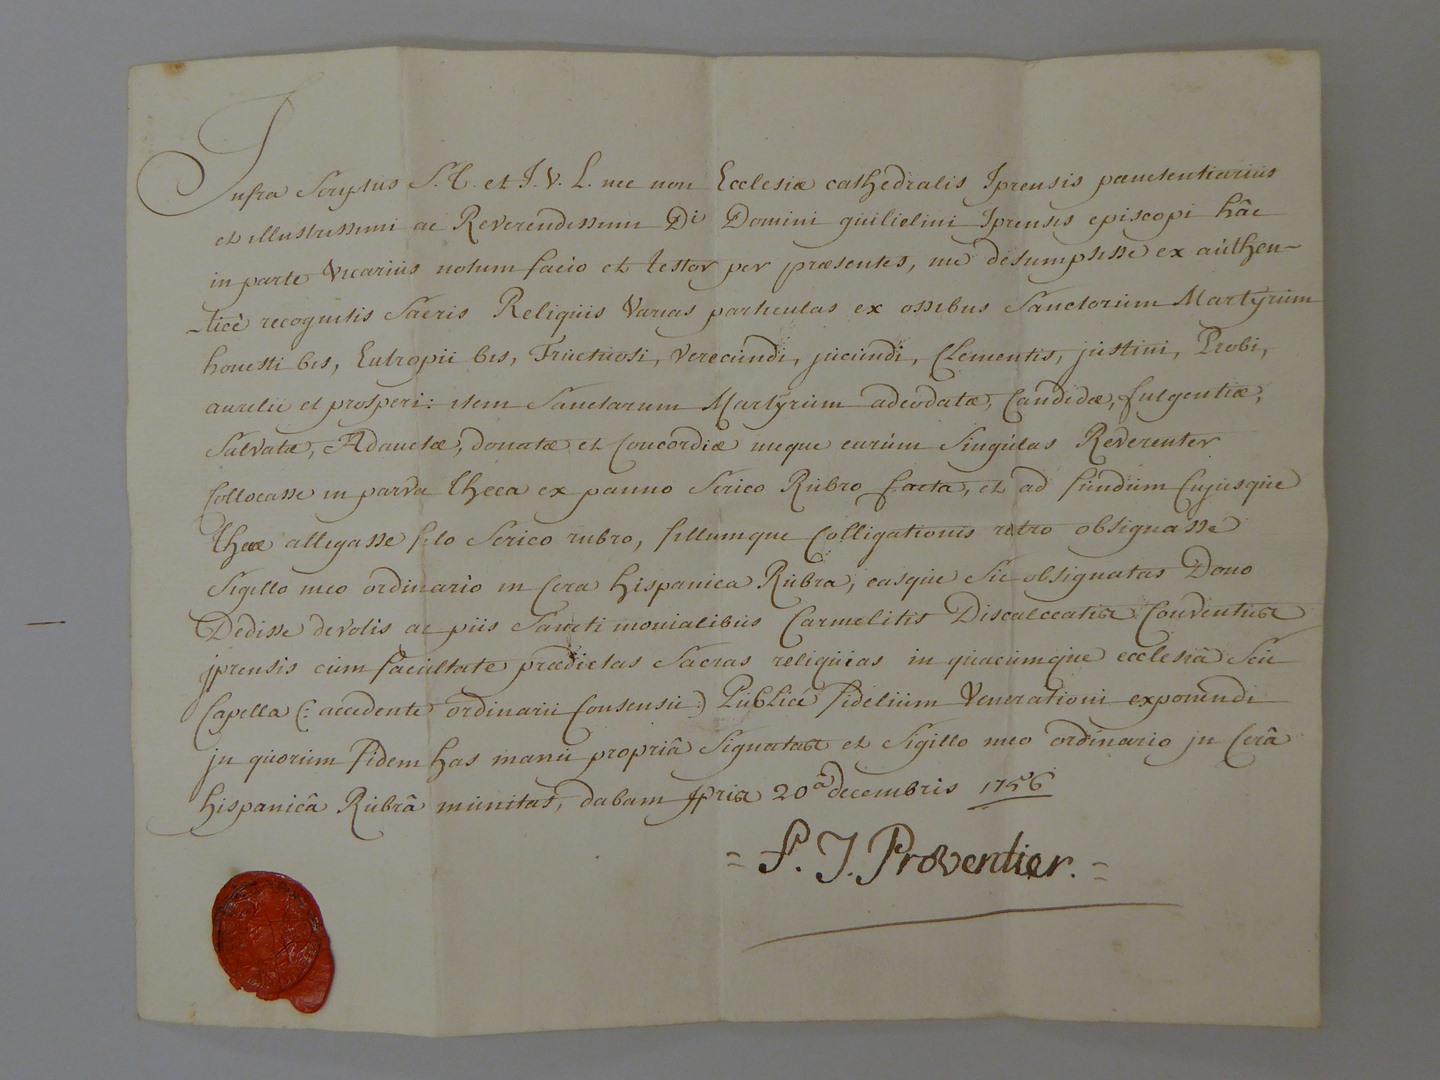 Infra Scriptus S. T. et J. V. L. nec non Ecclesiæ cathedralis Jprensis pænetentiariüs
et illustrissimi ac Reverendissimi Di Domini guilielmi Jprensis episcopi hâc
in parte Vicariüs notum facio et testor per præsentes, me desumpsisse ex aüthen-
-ticè recognitis Sacris Reliqüiis Varias particulas ex ossibus Sanctorüm Martÿrüm
honesti bis, Eutropii bis, Früctüosi, Verecündi, jücündi, Clementis, jüstini, Probi,
aurelii et prosperi: item Sanctarum Martÿrüm adeodatæ, Candidæ, fulgentiæ,
Salvatæ, Adauctæ, donatæ et Concordiæ meque earüm Singülas Reverenter
Collocasse in parva theca ex panno Serico Rübro facta, et ad fündüm Cujusqüe
thecæ allegasse filo Serico rubro, fillumque Colligationis retro obsignasse
Sigillo meo ordinario in Cera hispanica Rübra, easqüe Sic obsignatas Dono
Dedisse devotis ac piis Sanctimonialibüs Carmelitis Discalceatis Conventüs
jprensis cüm facültate prædictas Sacras reliqüias in qüacümqüe ecclesiâ Seü
Capella (: accedente ordinarii Consensü :) Püblicè fidelium Venerationi exponendi
jn qüorüm fidem has manü propriâ Signatas et Sigillo meo ordinario jn Cerâ
hispanicâ Rübrâ münitas, dabam Jpris 20â decembris 1756
= P. J. Proventier. =